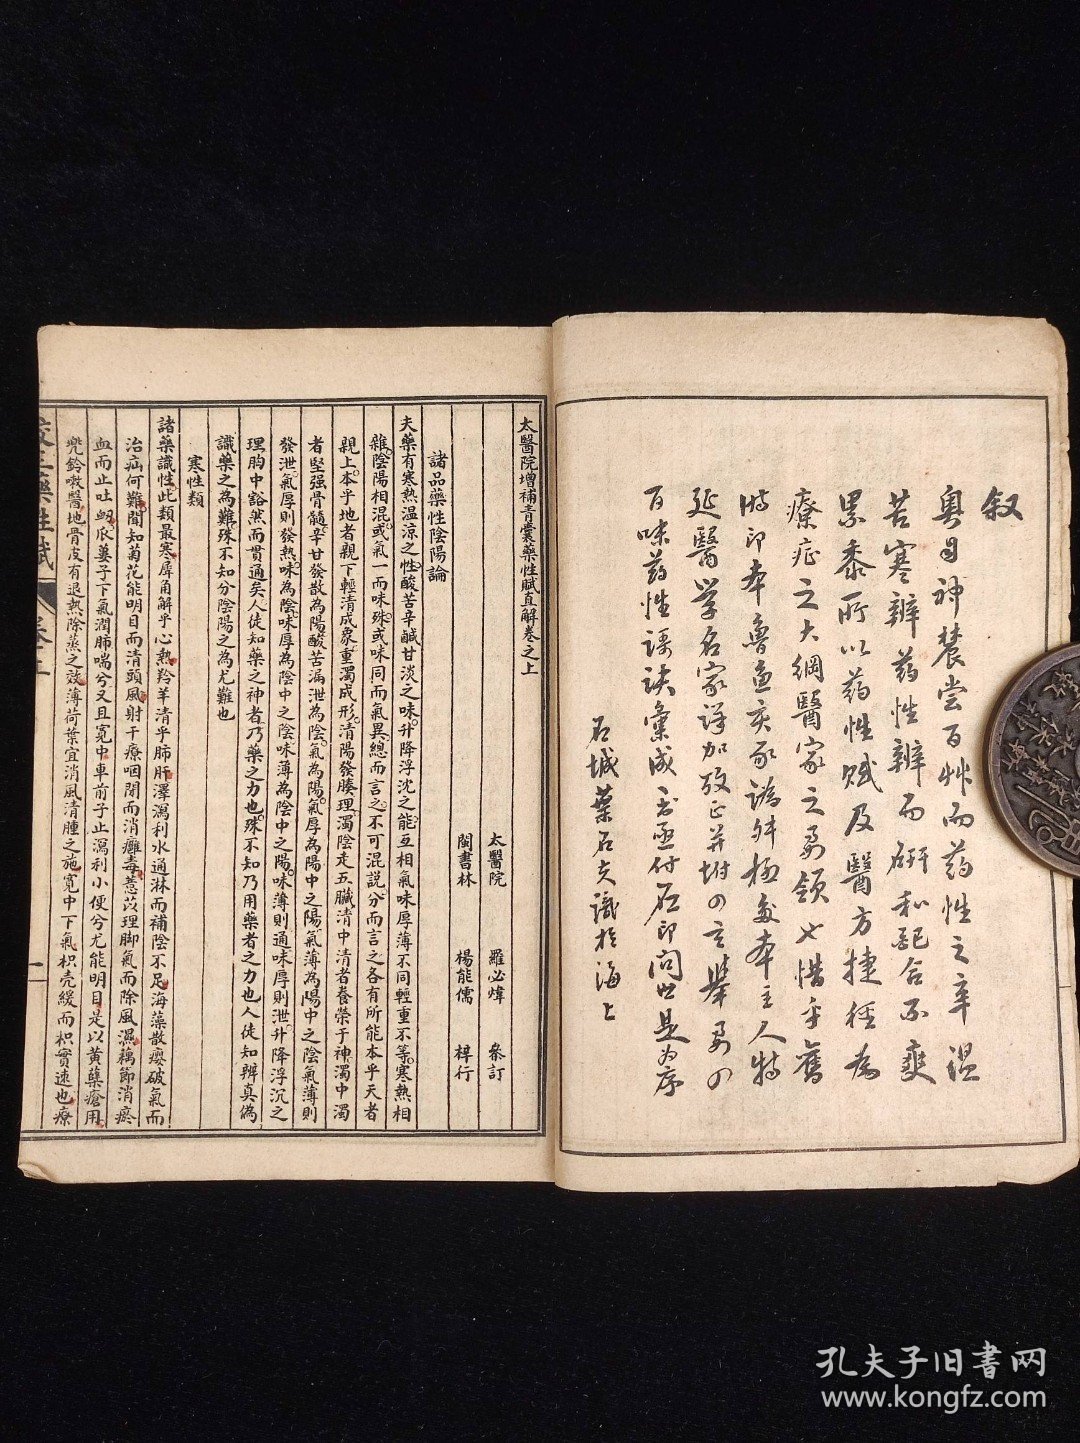 叙
粵自神農嘗百艸而药性之辛温
苦寒辨药性辨而硏和配合不爽
累黍所以药性赋及醫方捷徑為
療症之大綱醫家之要領也惜乎舊
時印本魯魚亥豕譌舛極多本主人特
延醫学名家詳加攷正并坿四言舉要四
百味药性謌訣彙成一書亟付石印問世是为序
石城葉石夫識於海上
太醫院增補青囊藥性賦直解卷之上
太醫院 羅必煒 叅訂
閩書林 楊能儒 梓行
諸品藥性陰陽論
夫藥有寒熱温涼之性酸苦辛鹹甘淡之味升降浮沈之能互相氣味厚薄不同輕重不等寒熱相
雜陰陽相混或氣一而味殊或味同而氣異總而言之不可混說分而言之各有所能本乎天者
親上本乎地者親下輕清成象重濁成形清陽發腠理濁陰走五臟清中清者養榮于神濁中濁
者堅强骨髓辛甘發散為陽酸苦漏泄為陰氣為陽氣厚為陽中之陽氣薄為陽中之陰氣薄則
發泄氣厚則發熱味為陰味厚為陰中之陰味薄為陰中之陽味薄則通味厚則泄升降浮沉之
理胸中豁然而貫通矣人徒知藥之神者乃藥之力也殊不知乃用藥者之力也人徒知辨真偽
識藥之為難殊不知分陰陽之為尤難也
寒性類
諸藥識性此類最寒犀角解乎心熱羚羊清乎肺肝澤瀉利水通淋而補陰不足海藻散癭破氣而
治疝何難聞知菊花能明目而清頭風射干療咽閉而消癰毒薏苡理脚氣而除風濕藕節消瘀
血而止吐衂瓜蔞子下氣潤肺喘兮又且寬中車前子止瀉利小便兮尤能明目是以黃蘗瘡用
兠鈴嗽醫地骨皮有退熱除蒸之效薄荷葉宜消風清腫之施寬中下氣枳壳緩而枳實速也療
藥性賦
孔夫子旧書网
www.kongfz.com